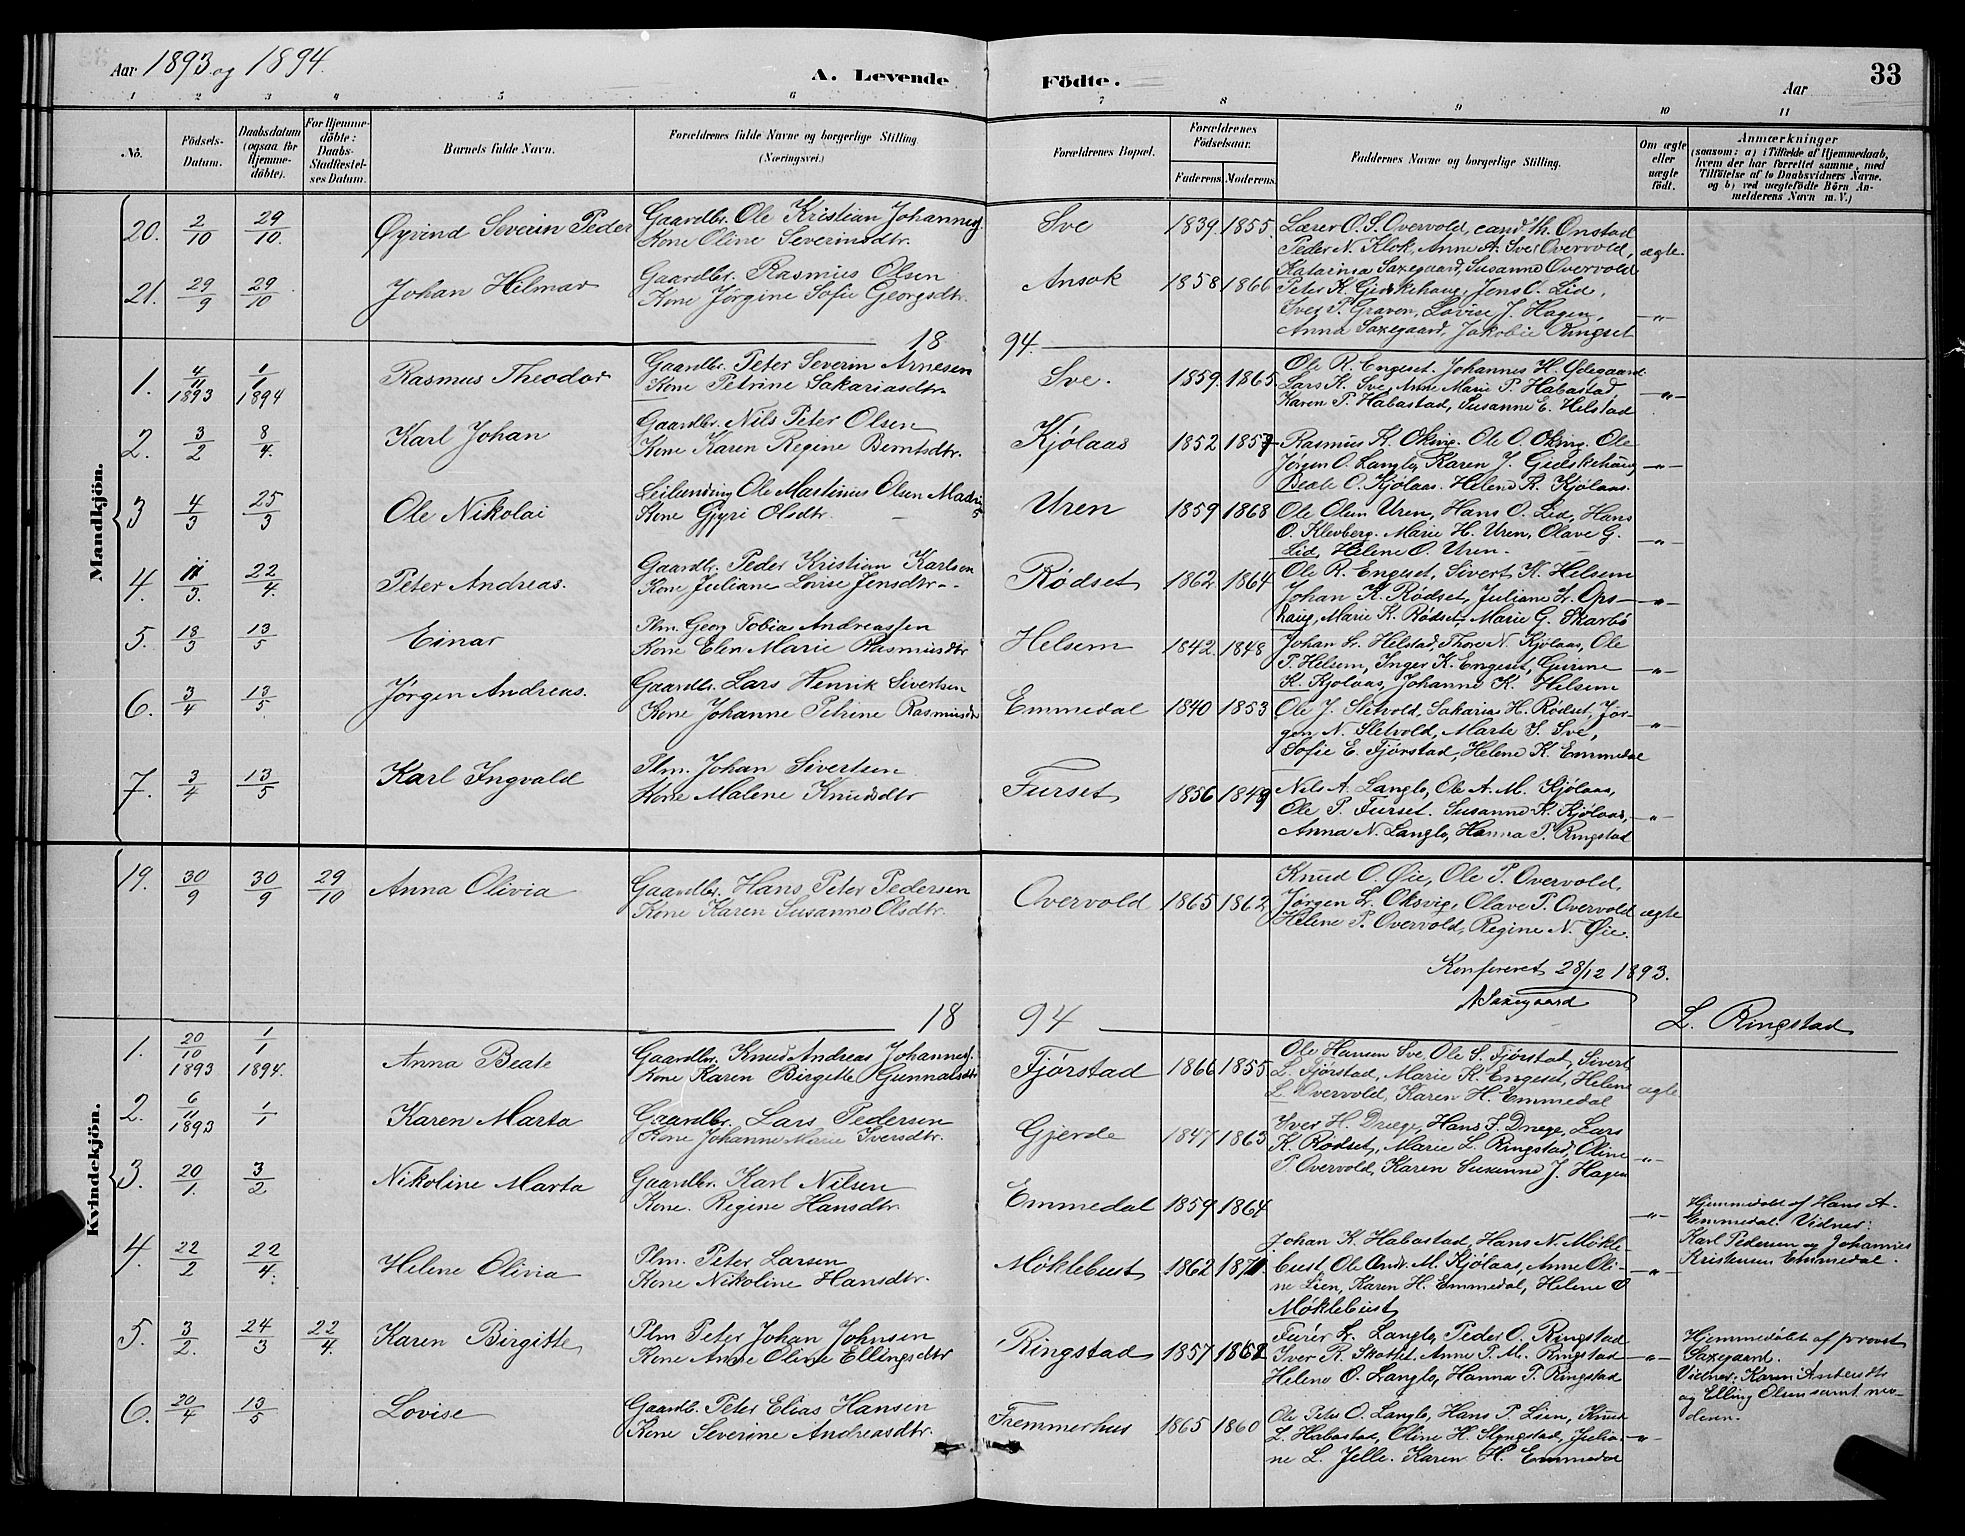 Aar 1893 og 1894.
A. Levende Födte.
Aar
33
1 2 3 4 5 6 7 8 9 10 11
No.
Födsels-
Datum.
Daabsdatum
(ogsaa for
Hjemme-
döbte).
For Hjemme-
döbte:
Daabs-
Stadfæstel-
ses Datum.
Barnets fulde Navn.
Forældrenes fulde Navne og borgerlige Stilling.
(Næringsvei.)
Forældrenes Bopæl.
Forældrenes
Födselsaar.
Faderens. Moderens.
Faddernes Navne og borgerlige Stilling.
Om ægte
eller
uægte
födt.
Anmærkninger
(saasom: a) i Tilfælde af Hjemmedaab,
hvem der har forrettet samme, med
Tilföielse af to Daabsvidners Navne.
og b) ved uægtefödte Börn An-
melderens Navn m. V.)
Mandkjön.
20. 2/10 29/10. Øyvind Severin Peder
Gaardbr. Ole Kristian Johannes.
Kone Oline Severinsdtr.
Sve 1839. 1855.
Lærer O. S. Overvold, cand. th. Onstad
Peder N. Klok, Anne A. Sve, Overvold,
Katarina Saxegaard, Susanne Overvold
ægte.
21. 29/9 29/10 Johan Hilmar
Gaardbr. Rasmus Olsen
Kone Jørgine Sofie Georgsdtr.
Ansok 1858 1866
Peter K. Gjskehaug, Jens O. Lid,
Iver P. Graven, Lovise J. Hagen,
Anna Saxegaard, Jakobie Ringset
-"-
18 94.
1. 4/11 1893 1/1 1894 Rasmus Theodor
Gaardbr. Peter Severin Arnesen
Kone Petrine Sakariasdtr.
Sve. 1859. 1865.
Ole R. Engeset. Johannes H. Ødegaard
Lars K. Sve, Anne Marie P. Habastad,
Karen P. Habastad, Susanne E. Helstad
-"-
2. 3/2 8/4. Karl Johan
Gaardbr. Nils Peter Olsen
Kone Karen Regine Berntsdtr.
Kjølaas 1852 1857
Rasmus K. Oksvig. Ole O. Oksvig. Ole
Jørgen O. Langlo, Karen J. Gidskehaug
Beate O. Kjølaas. Helene R. Kjølaas.
-"-
3 4/3 25/3 Ole Nikolai
Leilending Ole Martinus Olsen
Kone Gjyri Olsdtr.
Uren 1859 1868
Ole Olsen Uren, Hans O. Lid, Hans
O. Klevberg. Marie H. Uren, Olave G.
Lid, Helene O. Uren.
-"-
4. 11/3. 22/4. Peter Andreas.
Gaardbr. Peder Kristian Karlsen
Kone Juliane Lovise Jensdtr.
Rødset 1862. 1864
Ole R. Engeset, Sivert K. Helsem
Johan K. Rødset, Juliane L. Ops-
haug, Marie K. Rødset, Marie G. Skarbø
-"-
5. 18/3 13/5 Einar
Plm. Georg Tobias Andreassen
Kone Elen Marie Rasmusdtr
Helsem 1842. 1848
Johan L. Helstad, Thore N. Kjølaas, Ole
P. Helsem, Inger K. Engeset, Gurine
K. Kjølaas, Johanne K. Helsem
-"-
6. 3/4 13/5. Jørgen Andreas.
Gaardbr. Lars Henrik Sivertsen
Kone Johanne Petrine Rasmusdr
Emmedal 1840 1853
Ole J. Sletvold, Sakarias H. Rødset, Jør-
gen N. Sletvold, Marte S. Sve,
Sofie E. Fjørstad, Helene K. Emmedal
-"-
7. 3/4 13/5 Karl Ingvald
Plm. Johan Sivertsen
Kone Malene Knudsdtr
Furset 1856 1849
Nils A. Langlo, Ole A. M. Kjølaas,
Ole P. Furset. Susanne K. Kjølaas,
Anna N. Langlo, Hanna P. Ringstad
-"-
Kvindekjön.
19. 30/9 30/9 29/10 Anna Olivia
Gaardbr. Hans Peter Pedersen
Kone Karen Susanne Olsdtr.
Overvold 1865 1862
Knud O. Øie, Ole P. Overvold,
Jørgen L. Oksvig, Olave P. Overvold
Helene P. Overvold, Regine N. Øie.
ægte
Konfereret 28/12 1893.
Saxegaard
L. Ringstad
18 94
1. 20/10 1893 1/1 1894. Anna Beate
Gaardbr. Knud Andreas Johannes.
Kone Karen Birgitte Gunnarsdtr
Fjørstad 1866 1855
Ole Hansen Sve, Ole S. Fjørstad, Sivert
L. Fjørstad, Marie K. Engeset, Helene
L. Overvold, Karen H. Emmedal
ægte
2. 6/11 1893 1/1 Karen Marta
Gaardbr. Lars Pedersen
Kone Johanne Marie Iversdtr.
Gjerde 1847 1863
Iver H. Drege, Hans J. Drege, Lars
K. Rødset, Marie L. Ringstad, Oline
P. Overvold, Karen Susanne J. Hagen
-"-
3. 20/1. 3/2 Nikoline Marta
Gaardbr. Karl Nilsen
Kone. Regine Hansdtr.
Emmedal 1859 1864
-"-
Hjemmedøbt af Hans A.
Emmedal. Vidner:
Karl Pedersen og Johannes
Kristensen Emmedal.
4. 22/2 22/4. Helene Olivia
Plm. Peter Larsen
Kone Nikoline Hansdtr.
Møklebust 1862 1871.
Johan K. Habostad, Hans N. Møkle-
bust, Ole Andr. M. Kjølaas, Anne Oli-
ne Lien, Karen H. Emmedal, Helene O
Møklebust
-"-
5. 3/2. 24/3 22/4. Karen Birgitte
Plm Peter Johan Johnsen
Kone Anne Oline Ellingsdtr
Ringstad 1857 1862
Furér L. Langlo, Peder O. Ringstad
Iver R. Skottet. Anne P. M. Ringstad
Helene O. Langlo, Hanna P. Ringstad
-"-
Hjemmedøbt af provst
Saxegaard.
Vidner: Karen
og Elling Olsen samt mo-
deren.
6. 20/4 13/5 Lovise
Gaardb. Peter Elias Hansen
Kone Severine Andreasdtr.
Fremmerhus 1865 1860
Ole Peter O. Langlo, Hans P. Lien, Knud
L. Habostad, Oline H. Slyngstad, Julia-
ne L. Jelle. Karen H. Emmedal
-"-